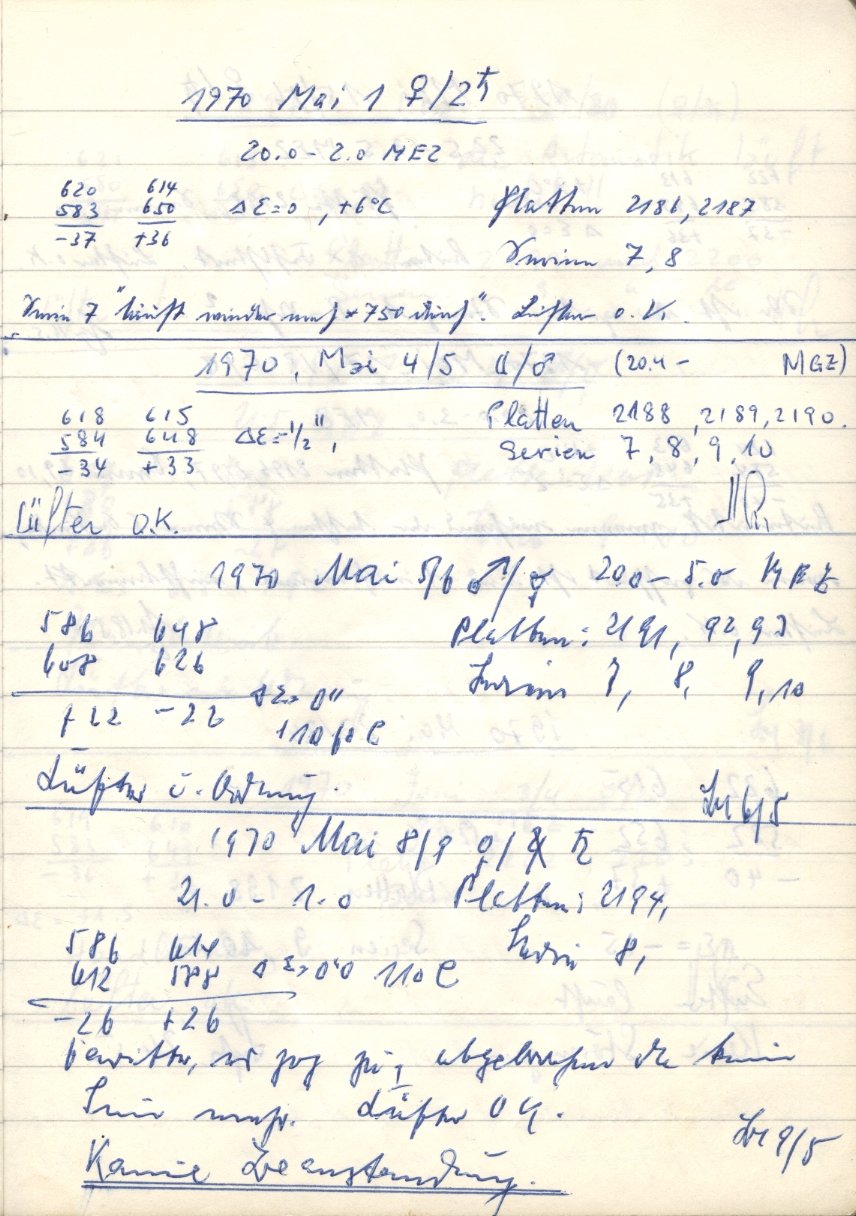 1970 Mai 1 ♀/2 ♄
20.0 - 2.0 MEZ
620 614
583 650 Δε=0, +6°C Platten 2186, 2187
-37 +36 Serien 7, 8
Serie 7 "läuft wieder nach * 750 durch". Lüfter o.K.
1970, Mai 4/5 ☾/♂ (20.4 - MGZ)
618 615 Platten 2188, 2189, 2190.
584 648 Δε=-1/2", Serien 7, 8, 9, 10
-34 +33
Lüfter O.K.
1970 Mai 5/6 ♂/☿ 20.0 - 5.0 MEZ
586 648 Platten: 2191, 92, 93
608 626 Serien 7, 8, 9, 10
+22 -22 Δε=0"
Lüfter i. Ordnung. 6/5
1970 Mai 8/9 ♀/♄
21.0 - 1.0 Platten: 2194,
586 614 Serie 8,
612 588 Δε=0"0 110C
-26 +26
Gewitter, es zog zu, abgebrochen da keine
Serie mehr. Lüfter OK.
9/5
Keine Beanstandung.